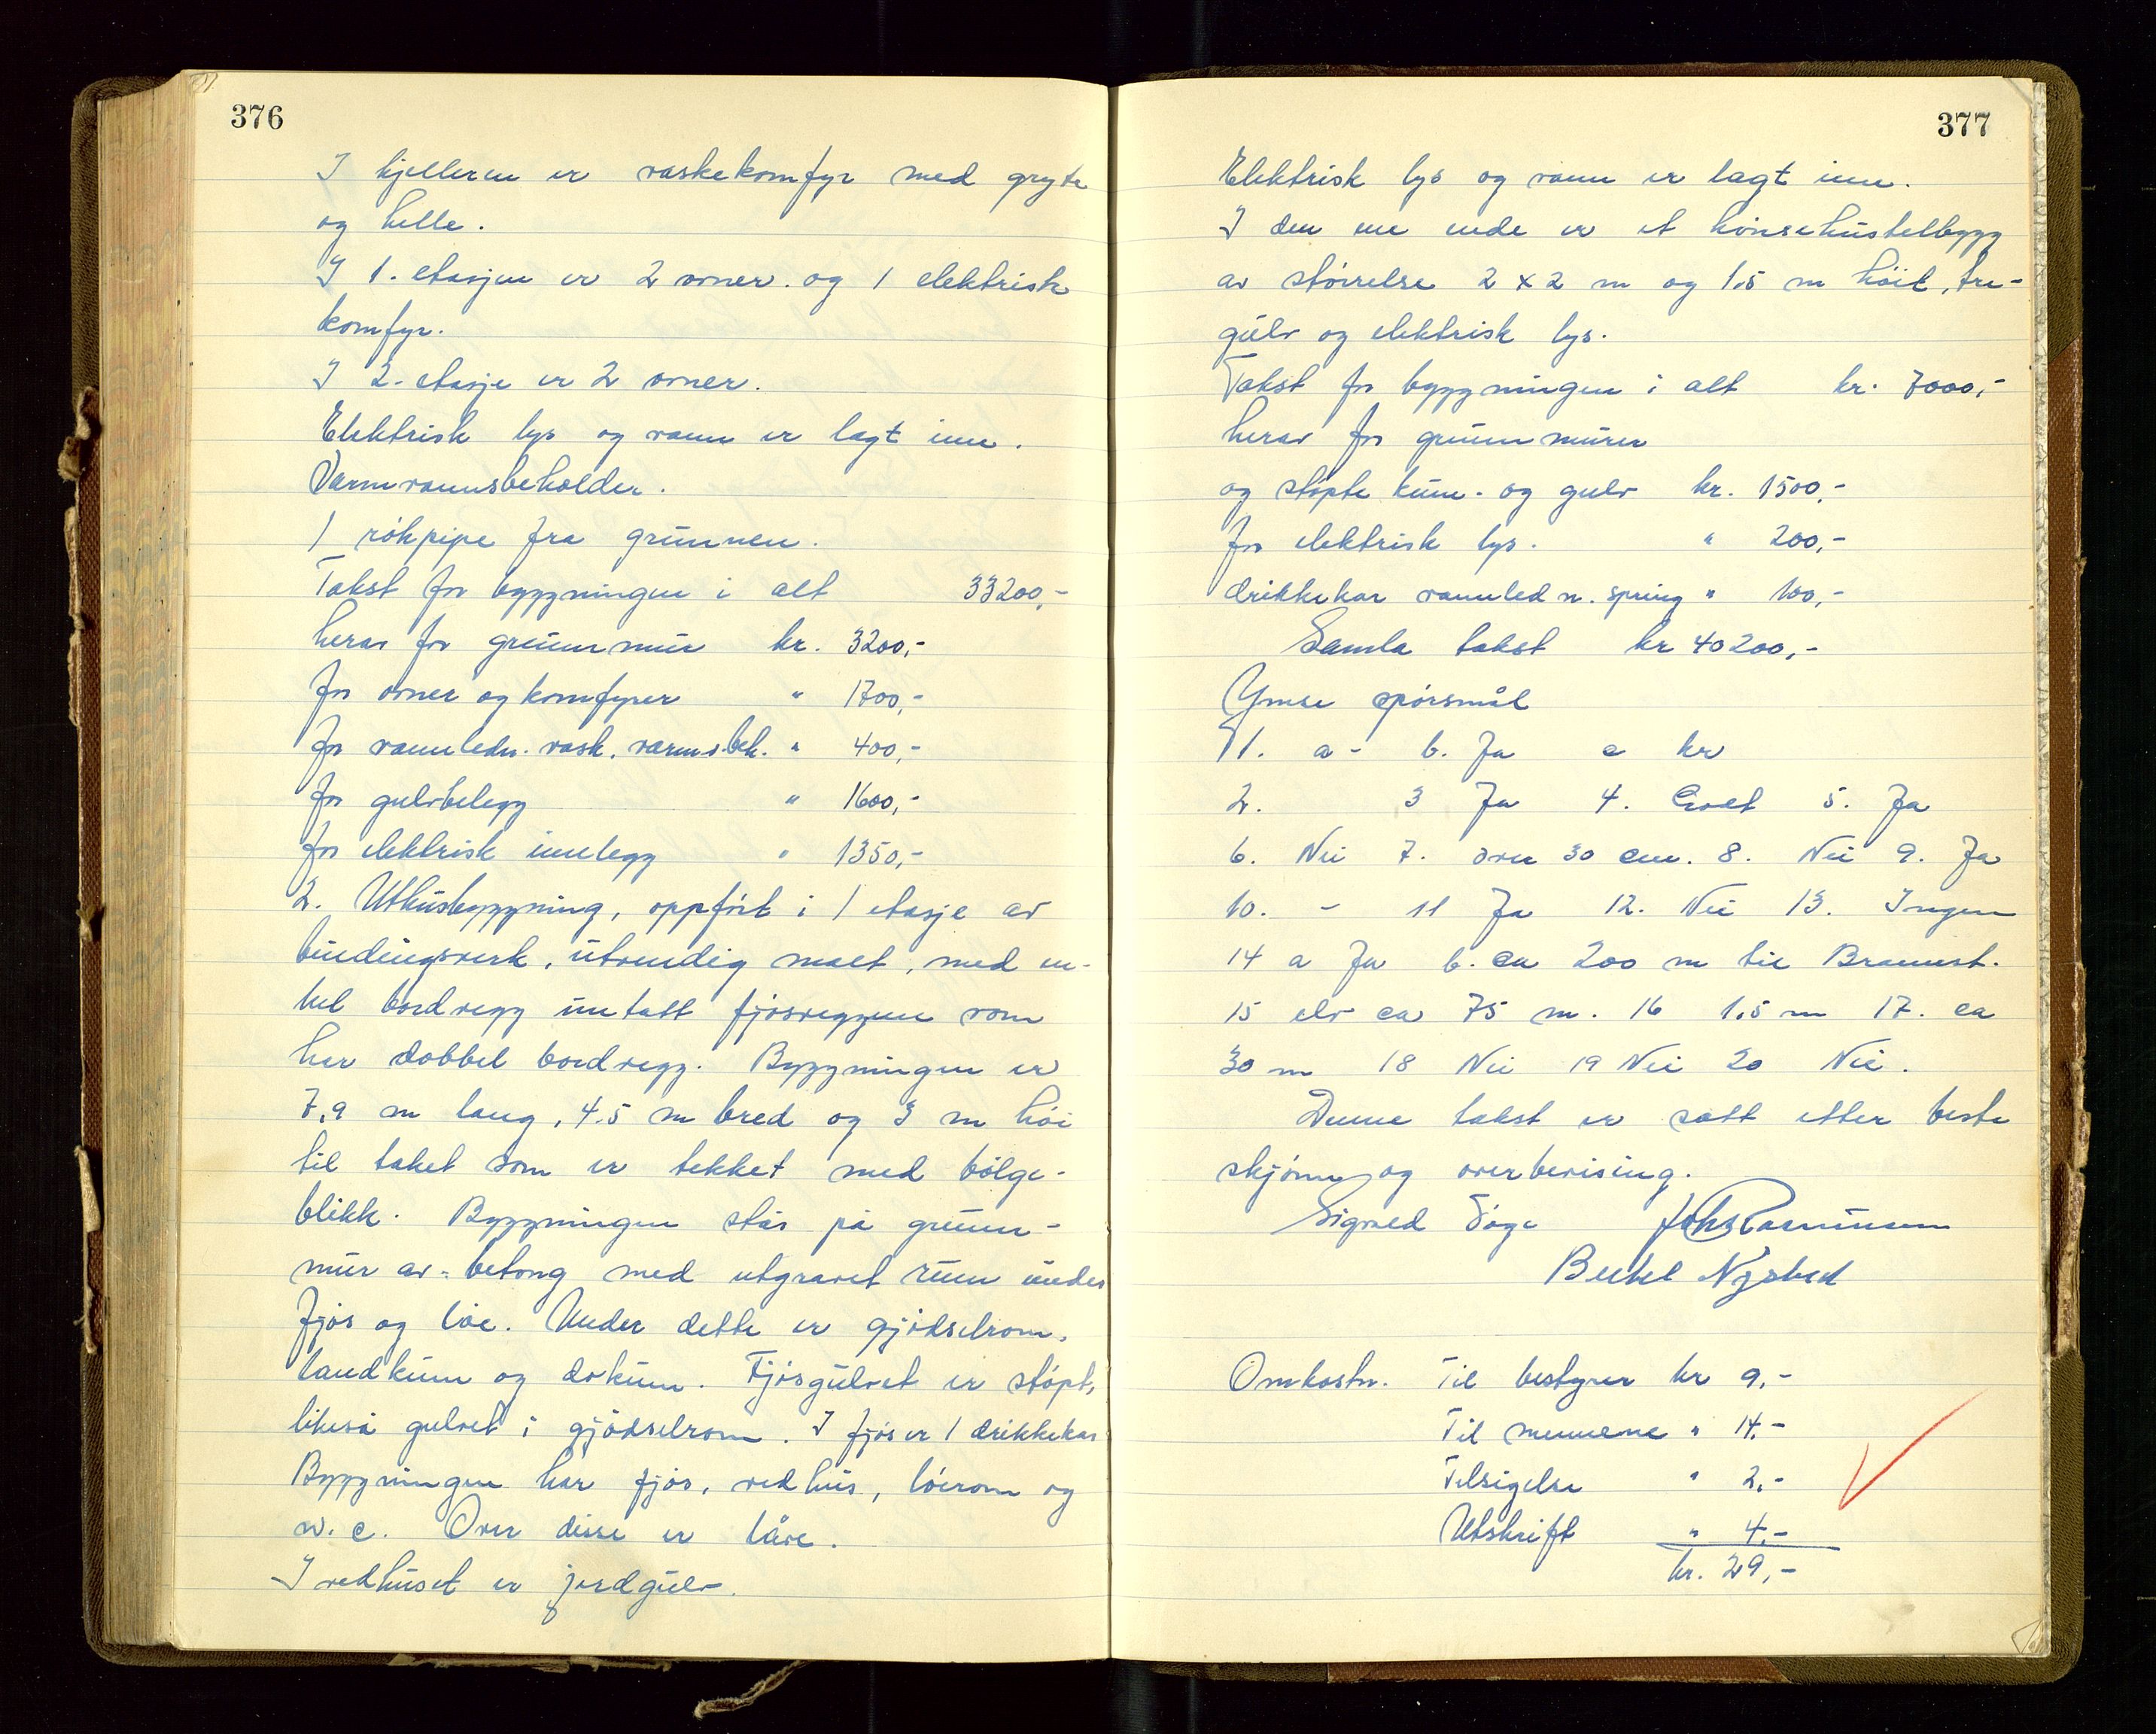 376
I kjelleren er vaskekomfyr med gryte
og helle.
I 1. etasjen er 2 ovner. og 1 elektrisk
komfyr.
I 2. etasje er 2 ovner.
Elektrisk lys og vann er lagt inn.
Varmvannsbeholder.
1 rökpipe fra grunnen.
Takst for bygningen i alt 33200,-
herav for grunnmur kr. 3200,-
for ovner og komfyrer " 1700,-
for vannledn. vask. varmv.beh. " 400,-
for gulvbelegg " 1600,-
for elektrisk innlegg " 1350,-
2. Uthusbygning, oppfört i 1 etasje av
bindingsverk, utvendig malt, med en-
kel bordvegg untatt fjösveggene som
har dobbel bordvegg. Bygningen er
7,9 m lang, 4.5 m bred og 3 m höi
til taket som er tekket med bölge-
blikk. Bygningen står på grunn-
mur av betong med utgravet rum under
fjös og löe. Under dette er gjödselrom,
landkum og dokum. Fjösgulvet er stöpt,
likeså gulvet i gjödselrom. I fjös er 1 drikkekar
Bygningen har fjös, vedhus, löerom og
w.c. Over disse er låve.
I vedhuset er jordgulv.
377
Elektrisk lys og vann er lagt inn.
I den ene ende er et hönsehustilbygg
av störrelse 2 x 2 m og 1.5 m höit, tre-
gulv og elektrisk lys.
Takst for bygningen i alt kr. 7000,-
herav for grunnmurer
og stöpte kum. og gulv kr. 1500,-
for elektrisk lys. " 200,-
drikkekar vannledn. spring " 100,-
Samla takst kr 40200,-
Ymse spörsmål
1. a - b. Ja c kr
2. 3 Ja 4. Godt 5. Ja
6. Nei 7. over 30 cm. 8. Nei 9. Ja
10. - 11 Ja 12. Nei 13. Ingen
14 a Ja b. ca 200 m til Brannst.
15 elv ca 75 m. 16 1.5 m 17. ca
30 m 18 Nei 19 Nei 20 Nei.
Denne takst er satt etter beste
skjönn og overbevising.
Sigvald Joh Rasmussen
Bertel
Omkostn. Til bestyrer kr 9,-
Til mennene " 14.-
Tilsigelse " 2,-
Utskrift " 4.-
kr. 29,-